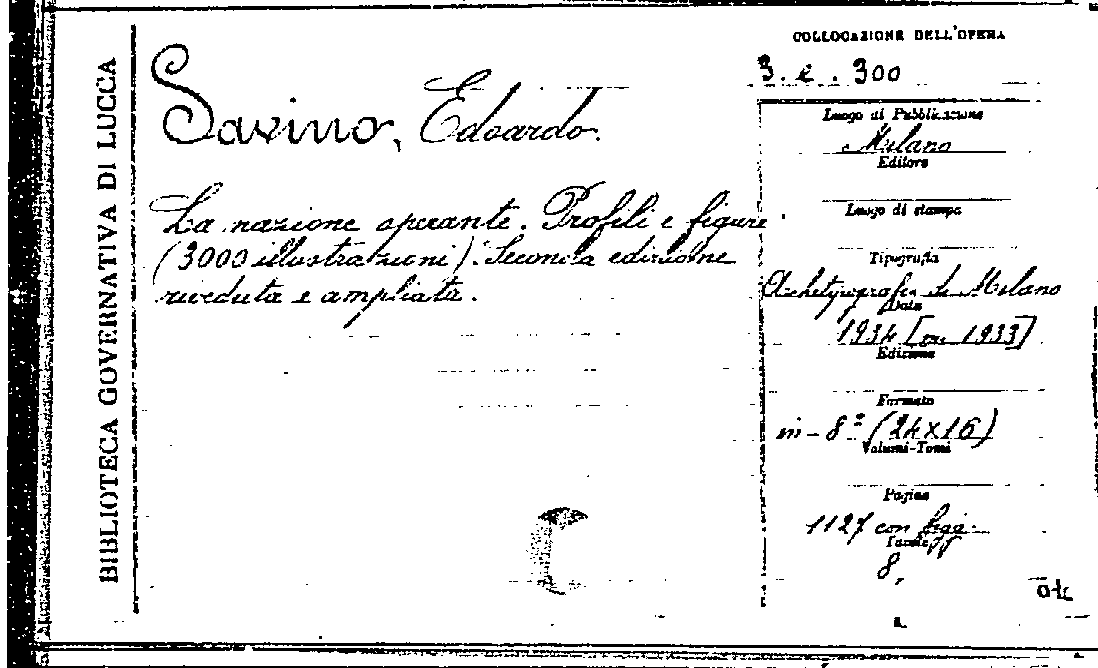 BIBLIOTECA GOVERNATIVA DI LUCCA
Savino, Edoardo.
La nazione operante. Profili e figure
(3000 illustrazioni). Seconda edizione
riveduta e ampliata.
COLLOCAZIONE DELL'OPERA
3. e. 300
Luogo di Pubblicazione
Milano
Editore
Luogo di stampa
Tipografia
Archetipografia di Milano
Data
1934 [ma 1933]
Edizione
Formato
in-8º (24x16)
Volumi-Tomi
Pagine
1127 con figg.
Tavole
8,